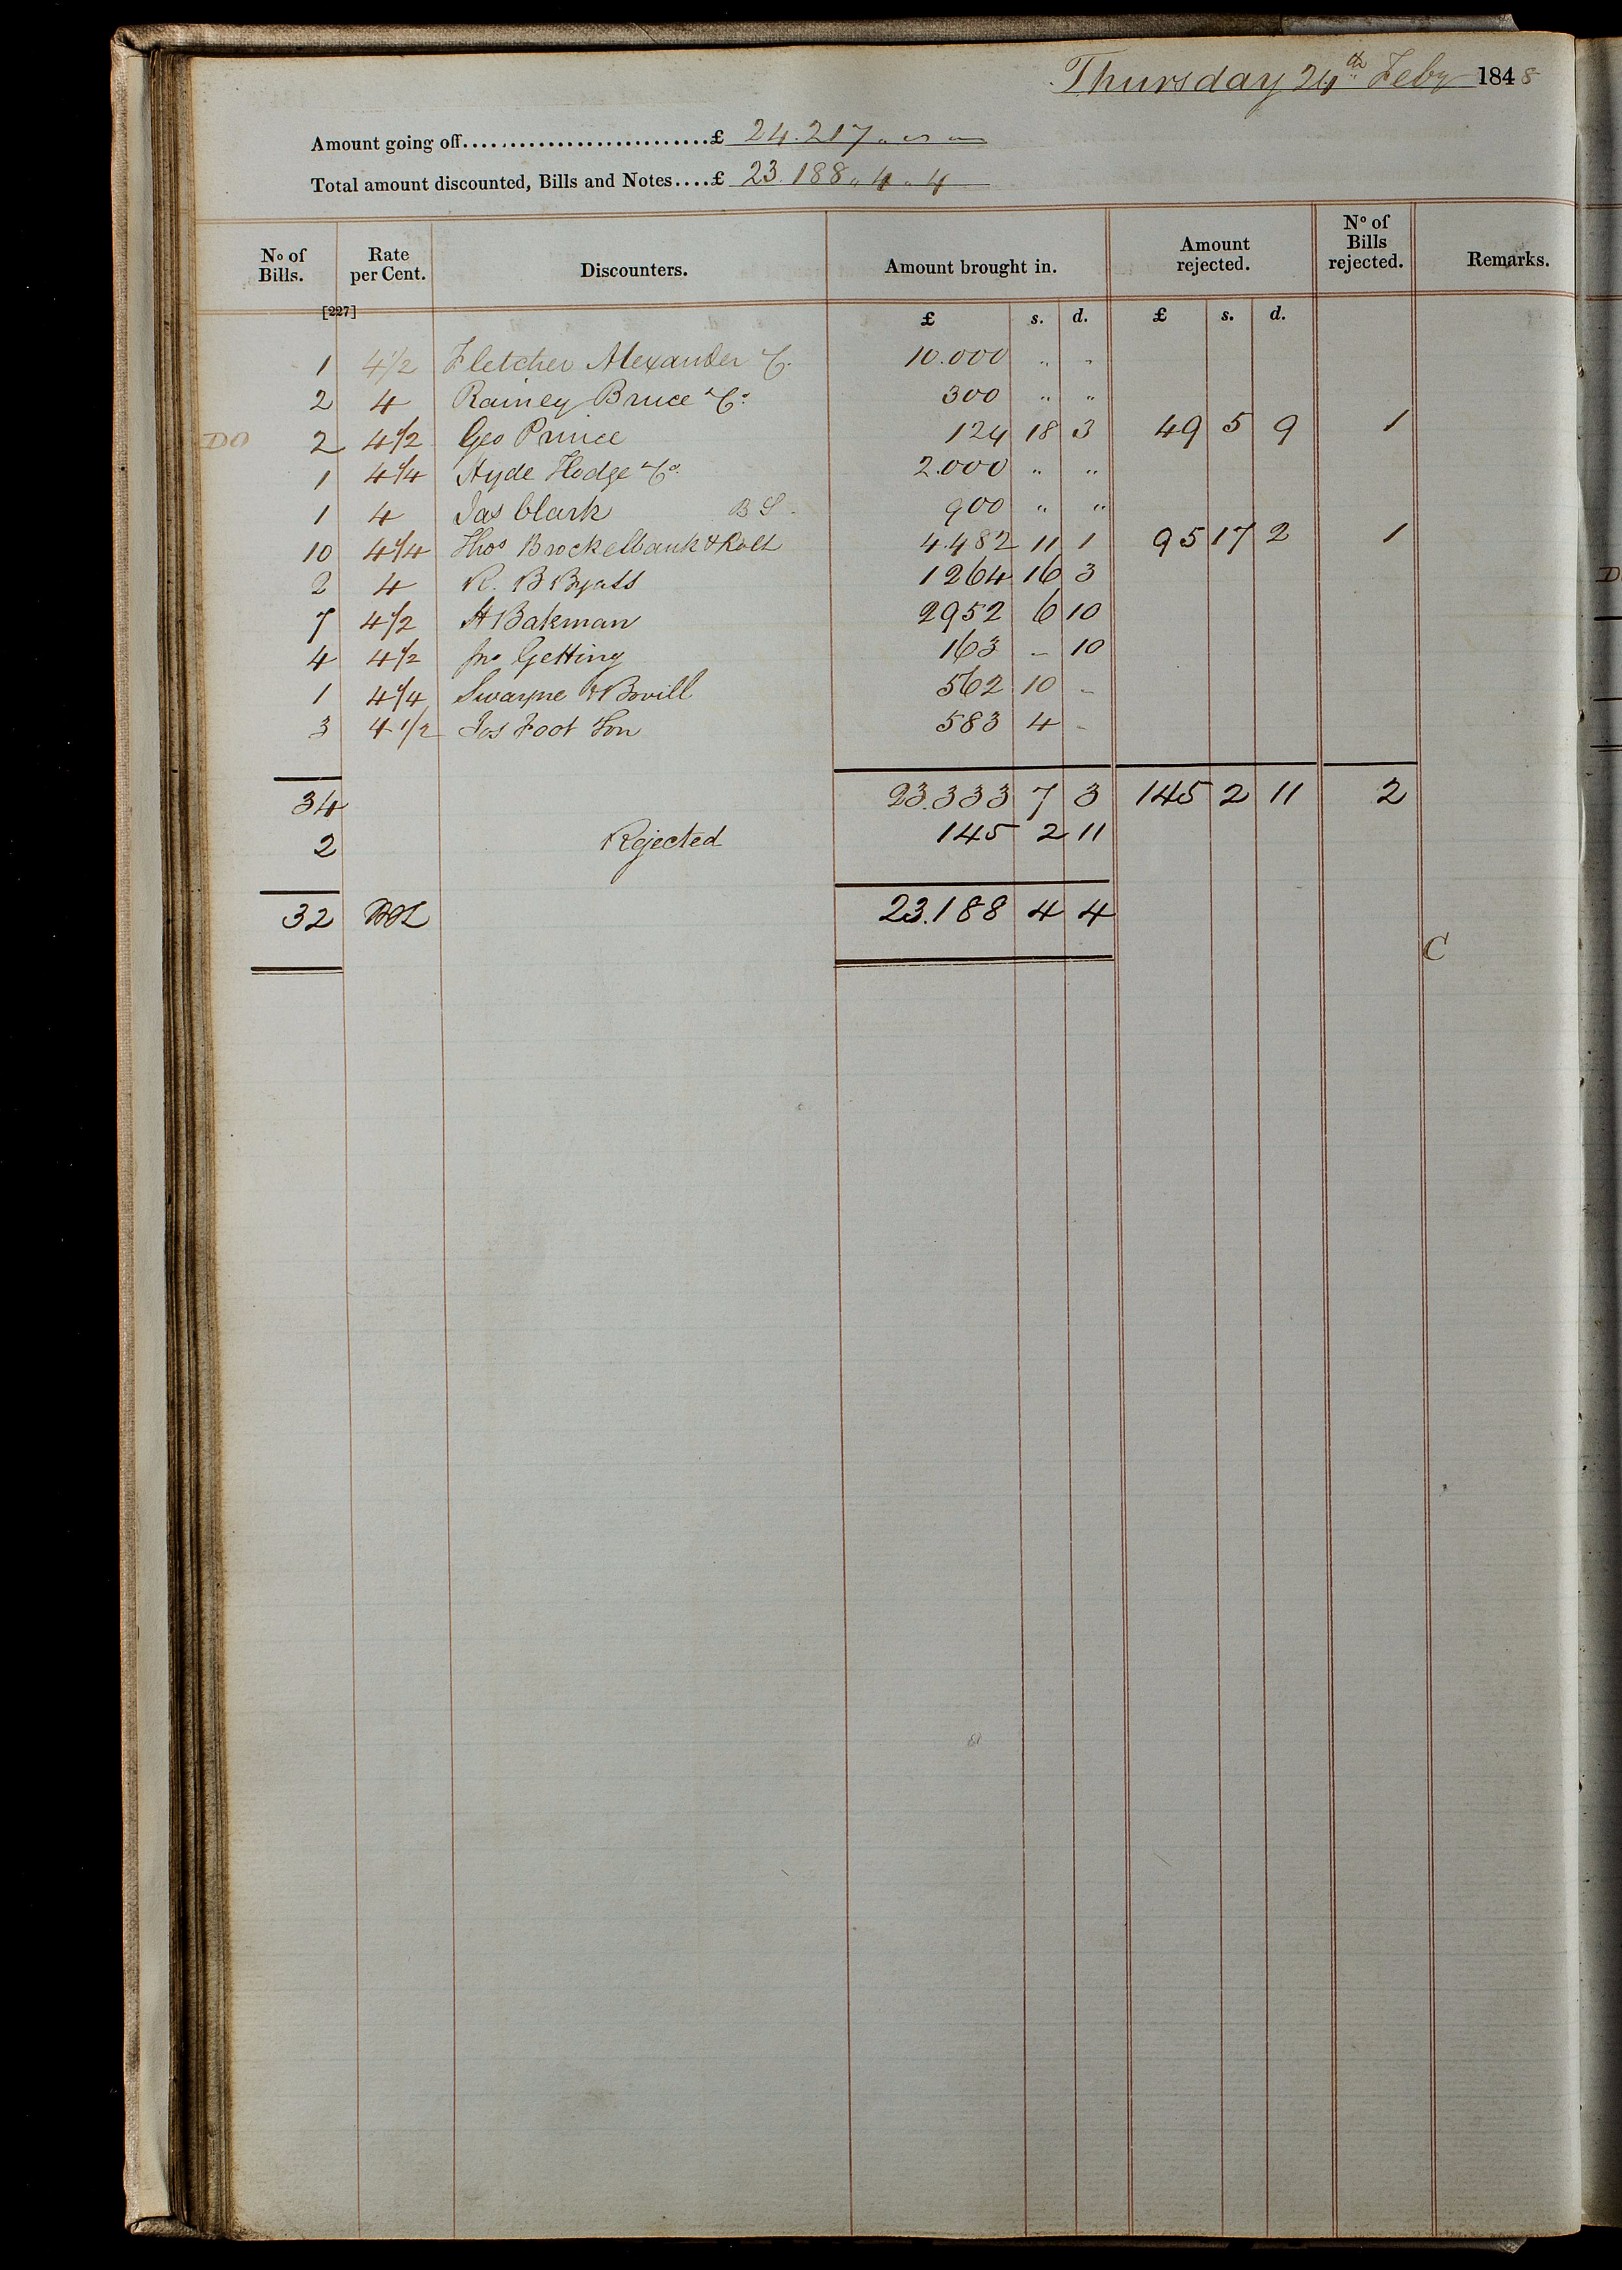 Thursday 24th Feby 1848
Amount going off...........................£ 24.217 " " "
Total amount discounted, Bills and Notes....£ 23.188 " 4 " 4
No of Bills. Rate per Cent. Discounters. Amount brought in. Amount rejected. No of Bills rejected. Remarks.
[227]
£ s. d. £ s. d.
1 4 1/2 Fletcher Alexander & Co. 10.000 " "
2 4 Rainey Bruce & Co. 300 " "
DO 2 4 1/2 Geo Prince 124 18 3 49 5 9 1
1 4 1/4 Hyde Hodge & Co. 2.000 " "
1 4 Jas Clark B S. 900 " "
10 4 1/4 Thos Brockelbank & Rolt 4.482 11 1 95 17 2 1
2 4 R. B Byass 1264 16 3
7 4 1/2 H Bakman 2952 6 10
4 4 1/2 Jno Getting 163 – 10
1 4 1/4 Swayne & Bovill 562 10 –
3 4 1/2 Jos Foot Son 583 4 –
34 23.333 7 3 145 2 11 2
2 Rejected 145 2 11
32 23.188 4 4
C